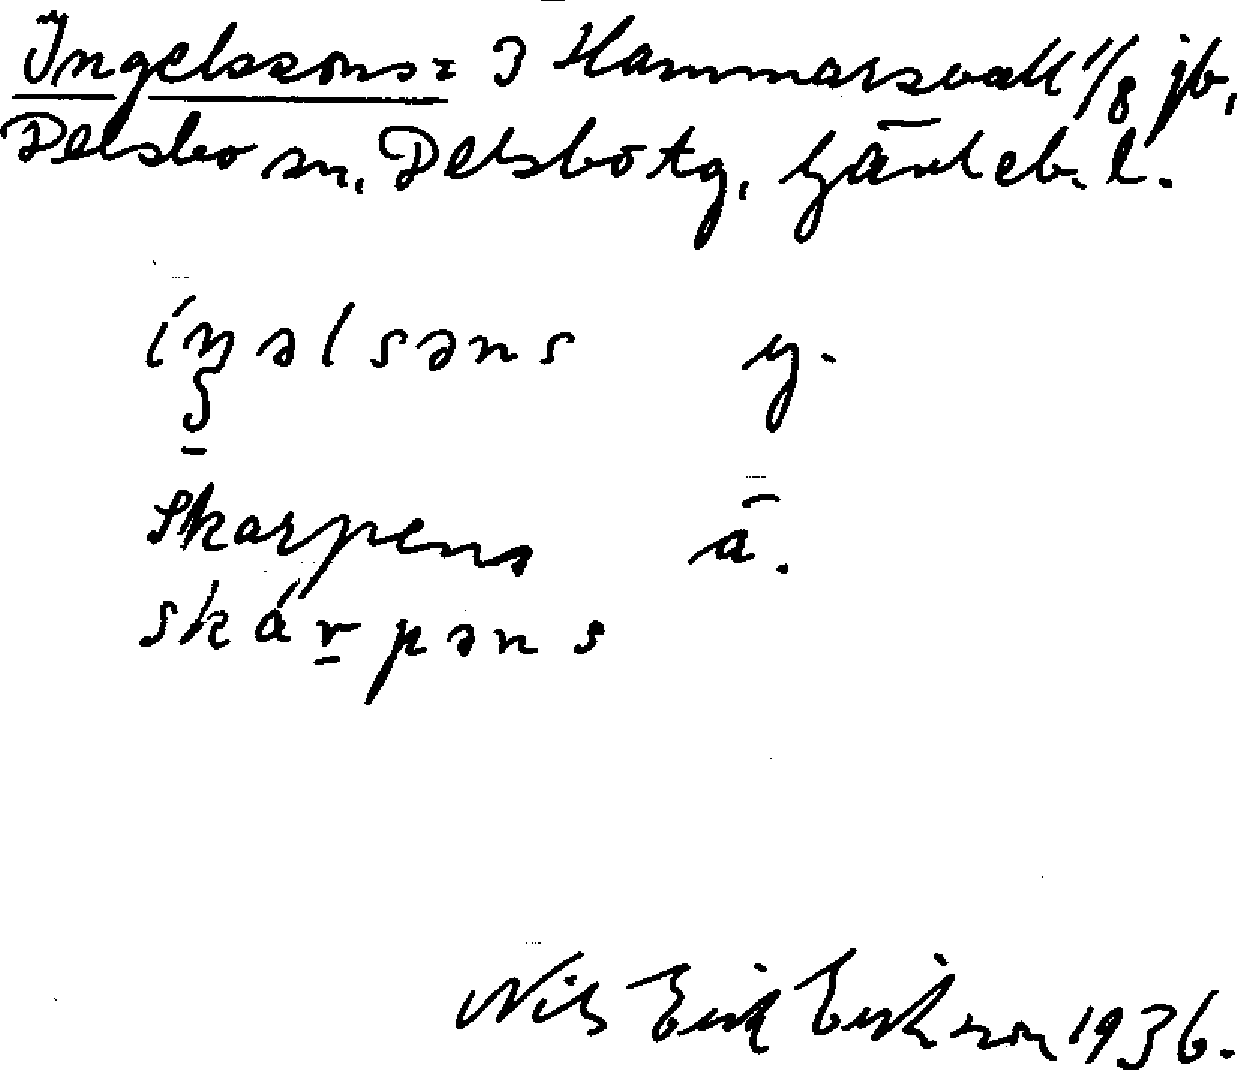 Ingelssons = I Hammarsvall 1/8 jb,
Delsbo sn, Delsbo tg, Gävleb. l.
íŋəlsəns y.
Skarpens ä.
skárpəns
Nils Erik Erikson 1936.